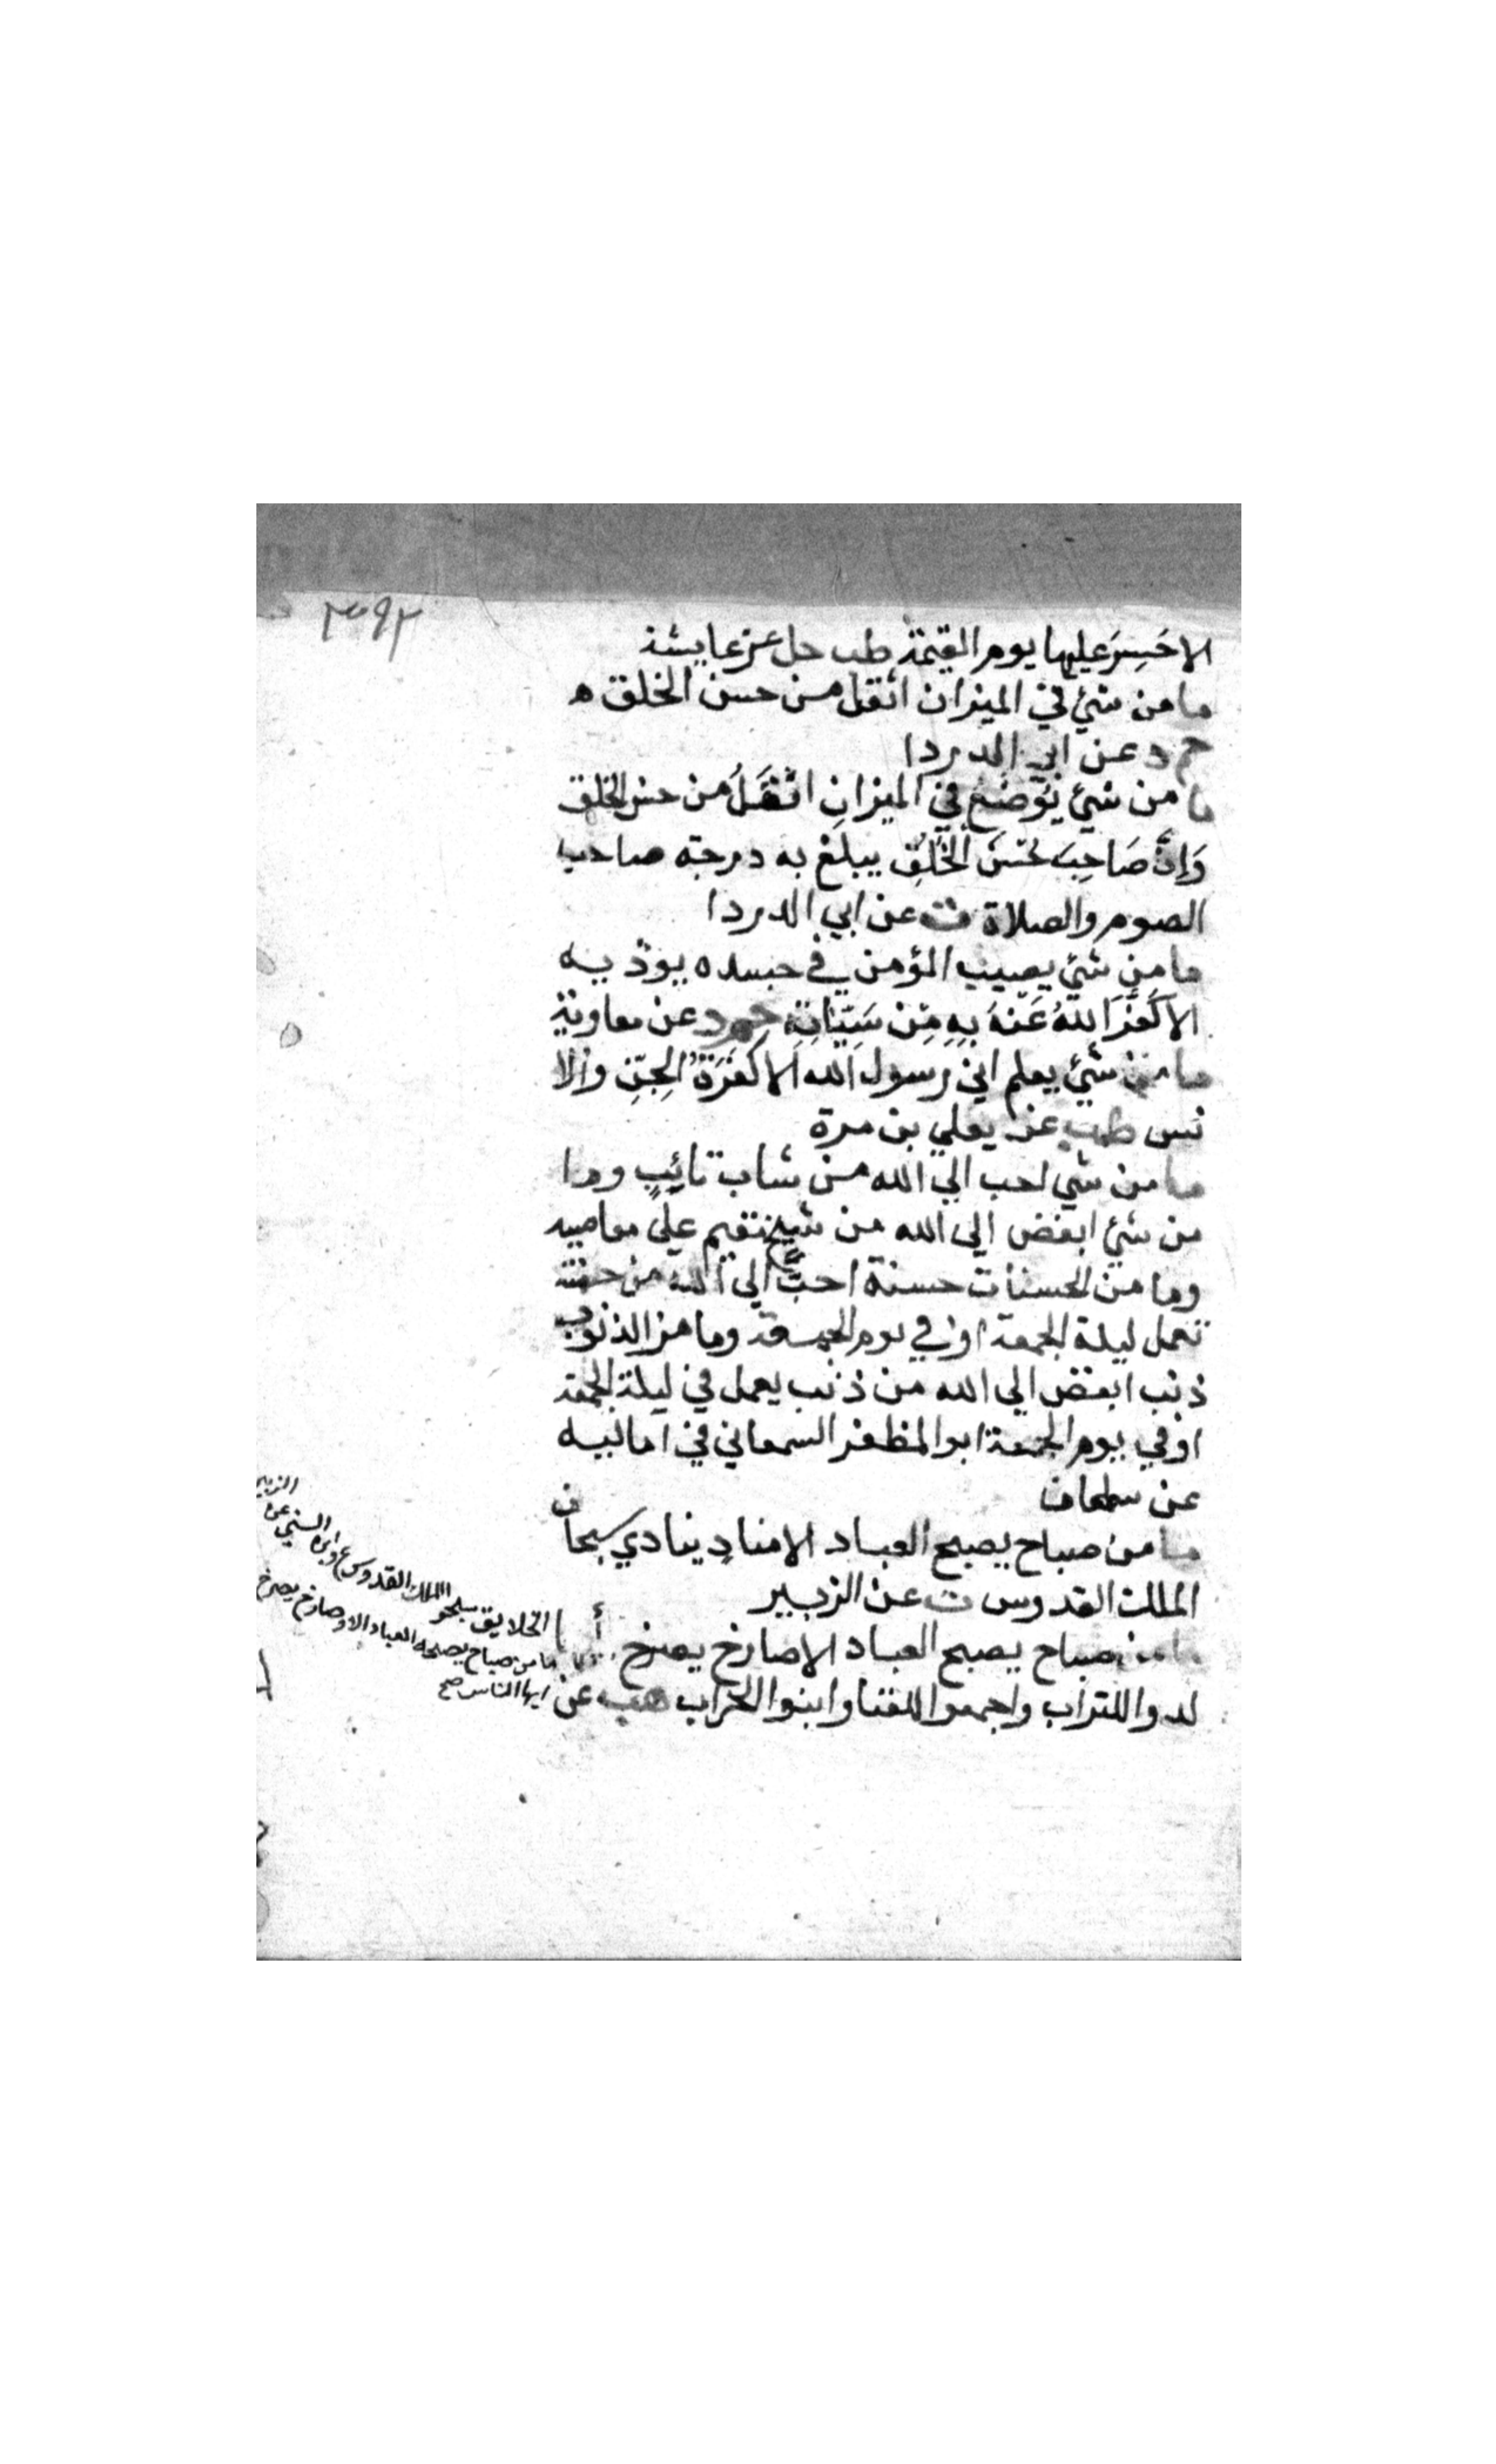 ٣٩٢
الا حَسِرَ عليها يوم القيمة طب حل عن عايشة
ما من شئ في الميزان اثقل من حسن الخلق ه
حم د عن ابي الدردا
ما من شئ يُوضع في الميزانِ اثقَلُ من حسن الخلق
وَاِنَّ صَاحِبَ حُسْنَ الخُلُقِ يبلغ به درجة صاحب
الصوم والصلاة ت عن ابي الدردا
ما من شئ يصيب المؤمن في جسده يوذيه
الا كَفَّرَ اللهُ عَنْهُ بِهِ مِّنْ سَيِّئاتِهِ حم د عن معاوية
ما من شئ يعلم اني رسول الله الا كَفَرَةُ الجِنِّ والا
نس طب عن يعلي بن مرة
ما من شي احب الي الله من شاب تائِبٍ وما
من شئ ابغض الى الله من شيخ مقيم على معاصيه
وما من الحسنات حسنة احبَّ الى الله من حسنة
تعمل ليلة الجمعة او في يوم الجمعة وما من الذنوب
ذنب ابغض الى الله من ذنب يعمل في ليلة الجمعة
او في يوم الجمعة ابو المظفر السمعاني في اماليه
عن سلمان
ما من صباح يصبح العباد الا منادٍ ينادي سبحان
الملك القدوس ت عن الزبير
ما من صباح يصبح العباد الا صارخ يصرخ
لدوا للتراب واجمعوا للفنا وابنوا للخراب هب عن
الخلايق سبحوا الملك القدوس ع وابن السني عن الزبير
ما من صباح يصبحه العباد الا وصارخ يصرخ
ايها الناس صح